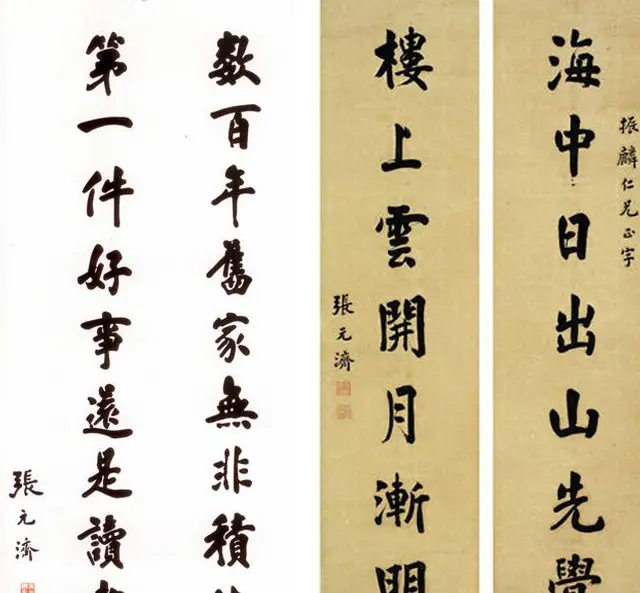 振麟仁兄正字
海中日出山先覺
樓上雲開月漸明
張元濟
数百年舊家無非積
第一件好事還是讀
張元濟